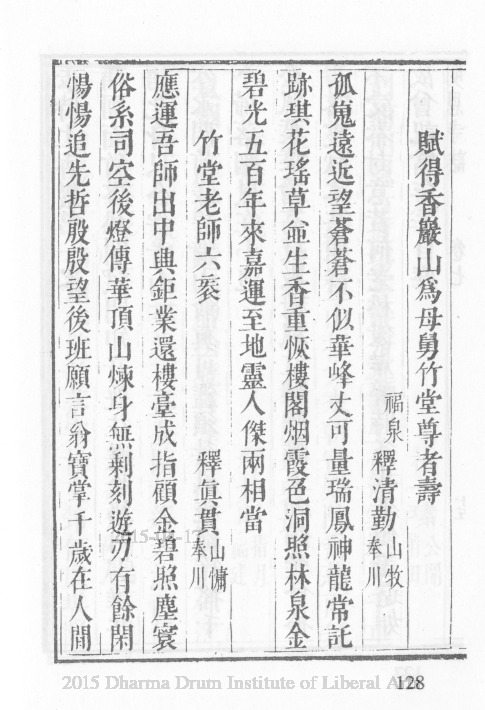 賦得香巖山爲母舅竹堂尊者壽
福泉 釋清勤 山牧 奉川
孤嵬遠近望蒼蒼不似華峰丈可量瑞鳳神龍常託
跡琪花瑤草僉生香重恢樓閣烟霞色洞照林泉金
碧光五百年來嘉運至地靈人傑兩相當
竹堂老師六袠 釋眞貫 山慵 奉川
應運吾師出中興鉅業還樓臺成指顧金碧照塵寰
俗系司空後燈傳華頂山煉身無剩刻遊刃有餘閑
惕惕追先哲殷殷望後班願言翁寶掌千歲在人間
2015 Dharma Drum Institute of Liberal Arts
128